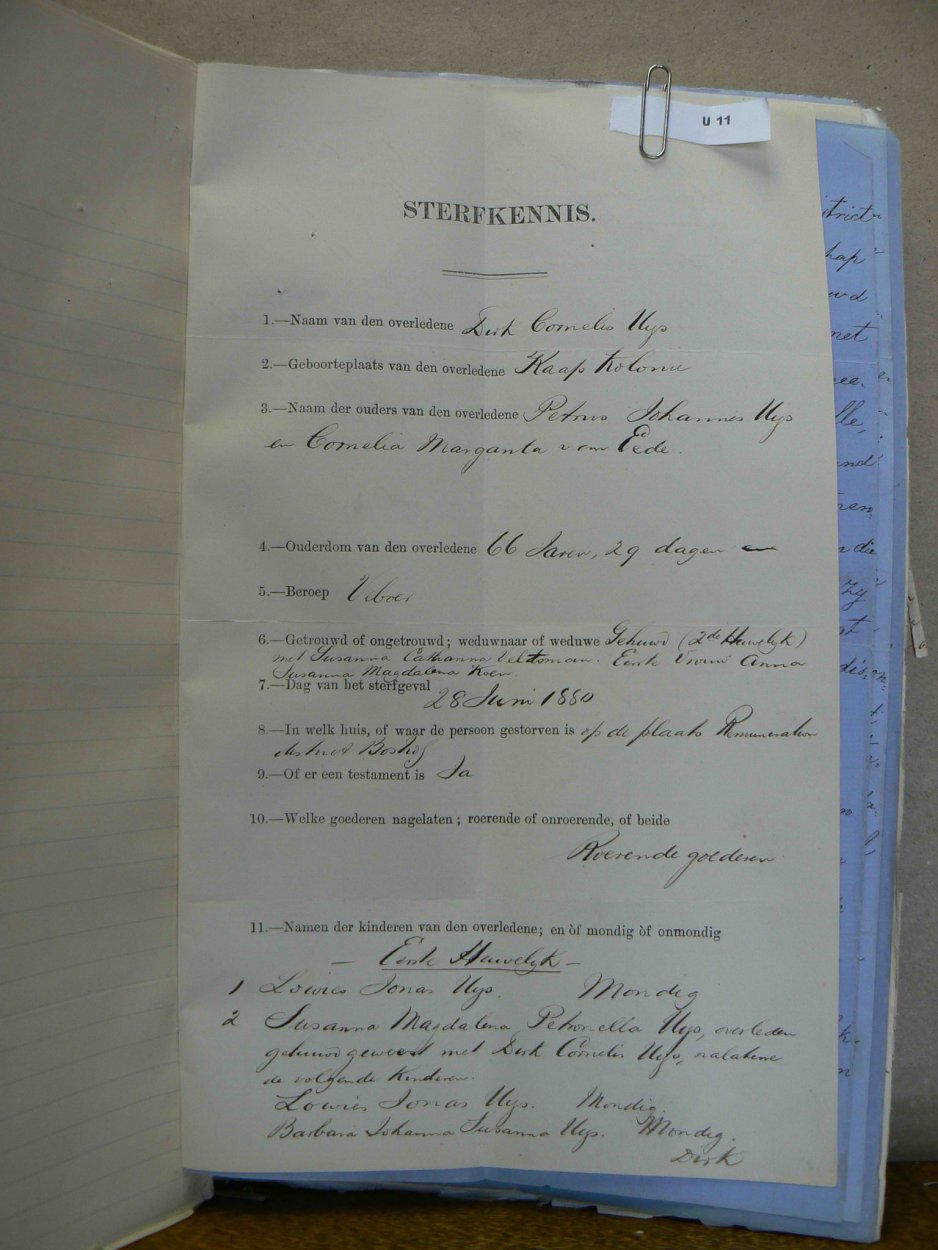 U 11
STERFKENNIS.
1.—Naam van den overledene Dirk Cornelis Uys
2.—Geboorteplaats van den overledene Kaap Kolonie
3.—Naam der ouders van den overledene Petrus Johannes Uys
en Cornelia Margarita van Eede.
4.—Ouderdom van den overledene 66 Jaren, 29 dagen
5.—Beroep Veboer
6.—Getrouwd of ongetrouwd; weduwnaar of weduwe Gehuwd (2de Huwelyk)
met Susanna Catharina Veltsman. Eerste Vrouw Anna
Susanna Magdalena Koen.
7.—Dag van het sterfgeval 28 Juni 1880
8.—In welk huis, of waar de persoon gestorven is op de plaats Remuneration
district Boshof
9.—Of er een testament is Ja
10.—Welke goederen nagelaten; roerende of onroerende, of beide
Roerende goederen
11.—Namen der kinderen van den overledene; en òf mondig òf onmondig
— Eerste Huwelyk —
1 Lowies Jonas Uys. Mondig
2 Susanna Magdalena Petronella Uys, overleden
gehuwd geweest met Dirk Cornelis Uys, nalatene
de volgende Kinderen.
Lowies Jonas Uys. Mondig.
Barbara Johanna Susanna Uys. Mondig.
Dirk